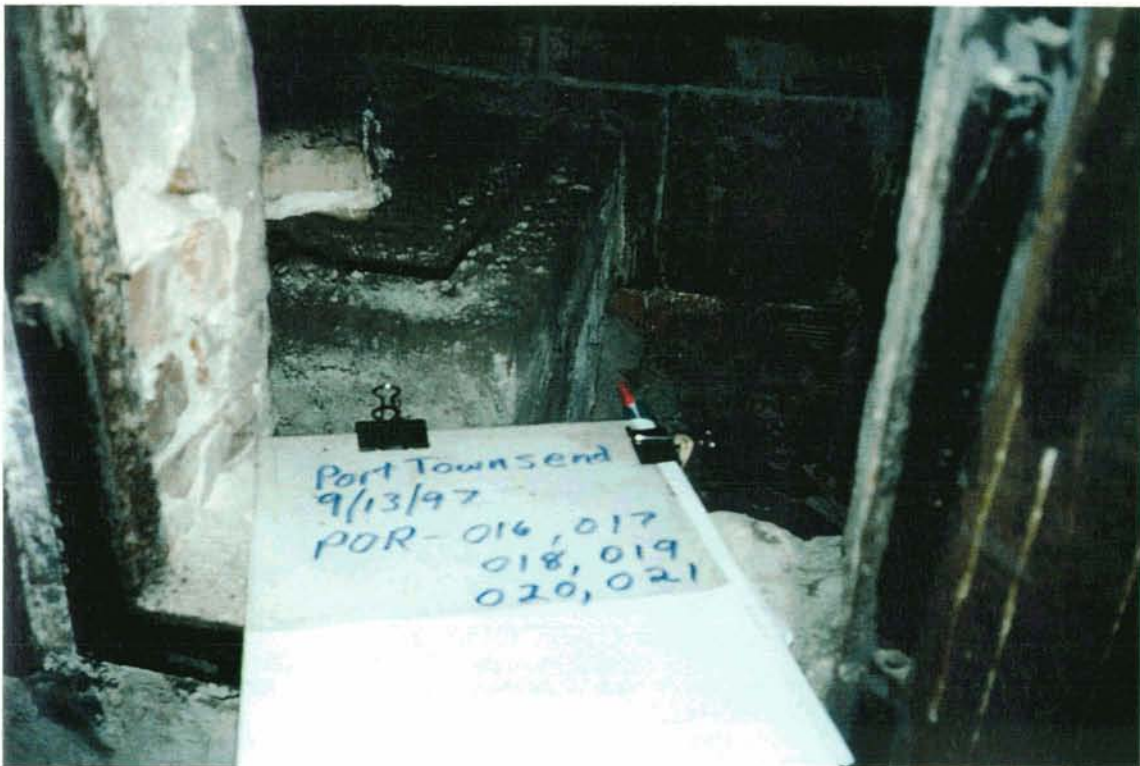 Port Townsend
9/13/97
POR- 016, 017
018, 019
020, 021